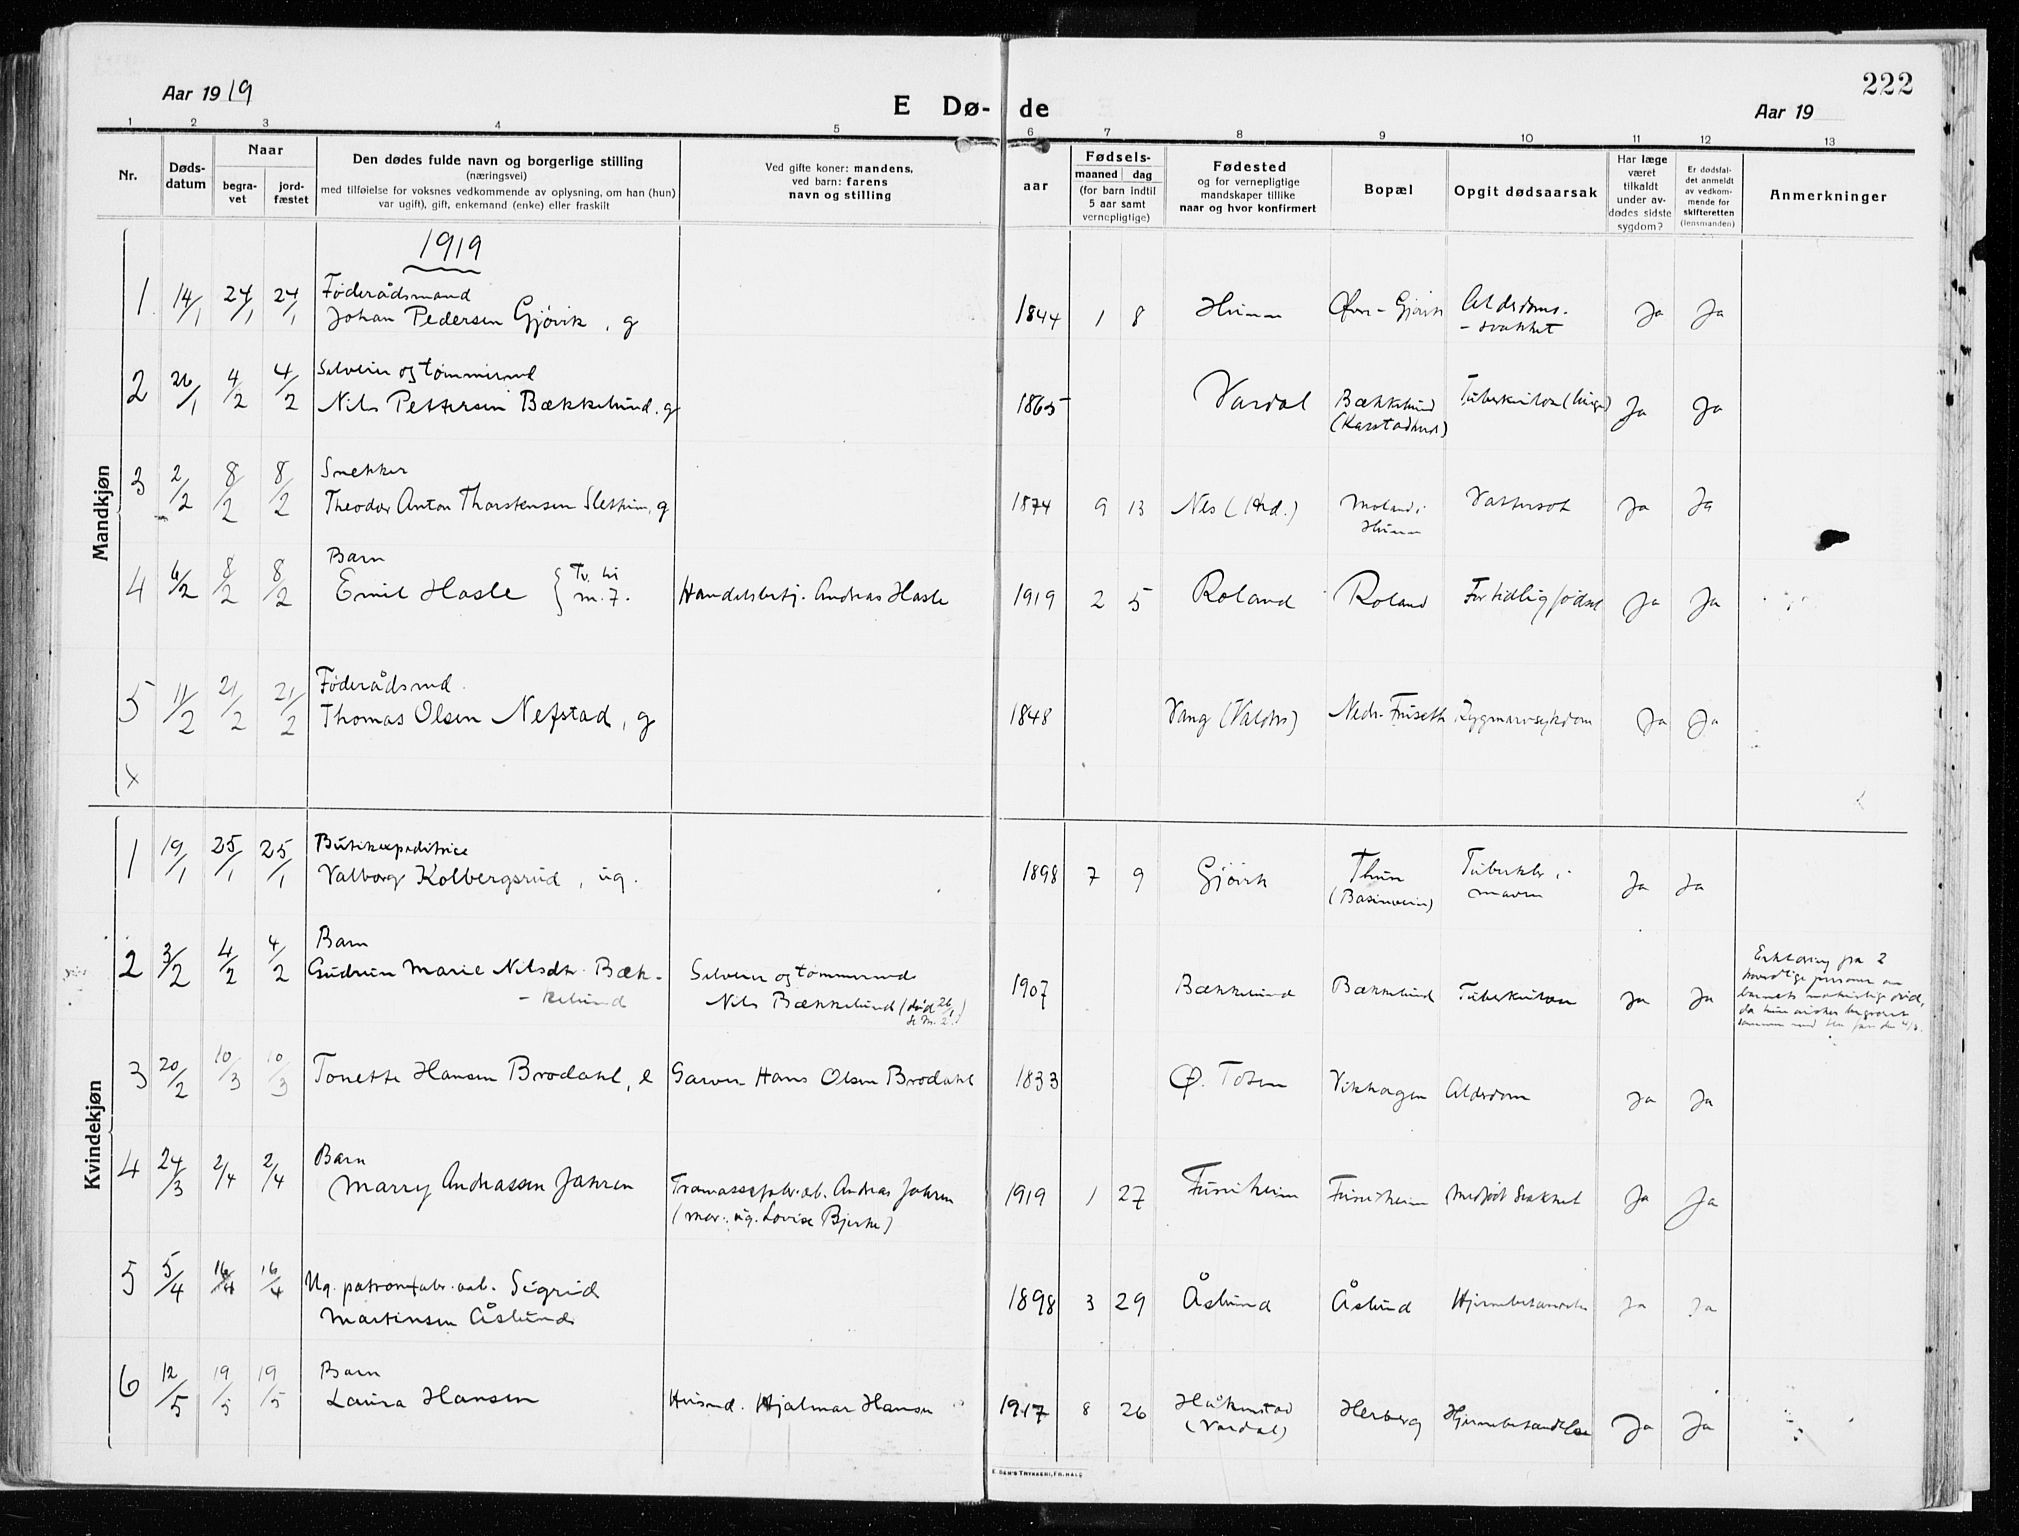 222
Aar 1919
E Dø-
de
Aar 19
1 2 3 4 5 6 7 8 9 10 11 12 13
Nr.
Døds-
datum
Naar
begra-
vet
jord-
fæstet
Den dødes fulde navn og borgerlige stilling
(næringsvei)
med tilføielse for voksnes vedkommende av oplysning, om han (hun)
var ugift), gift, enkemand (enke) eller fraskilt
Ved gifte koner: mandens,
ved barn: farens
navn og stilling
aar
Fødsels-
maaned dag
(for barn indtil
5 aar samt
vernepligtige)
Fødested
og for vernepligtige
mandskaper tillike
naar og hvor konfirmert
Bopæl
Opgit dødsaarsak
Har læge
været
tilkaldt
under av-
dødes sidste
sygdom?
Er dødsfal-
det anmeldt
av vedkom-
mende for
skifteretten
(lensmanden)
Anmerkninger
Mandkjøn
1919
Føderådsmand
1 14/1 24/1 24/1 Johan Pedersen Gjøvik, g 1844 1 8 Hunn Øvre-Gjøvik Alderdoms-
-svakhet Ja Ja
Selveier og tømmermd
2 26/1 4/2 4/2 Nils Pettersen Bækkelund, g 1865 Vardal Bækkelund Tuberkulose (lunger) Ja Ja
Snekker
3 2/2 8/2 8/2 Theodor Anton Thorstensen Slettum, g 1874 9 13 Nes (Hed.) Moland i Vattersot Ja Ja
Hunn
Barn
4 6/2 8/2 8/2 Emil Hasle { Tv. til
m. 7. Handelsbetj. Andreas Hasle 1919 2 5 Roland Roland For tidlig fødsel Ja Ja
Føderådsmd.
5 11/2 21/2 21/2 Thomas Olsen Nefstad, g 1848 Vang (Valdrs) Nedr. Fuseth Rygmarvsykdom Ja Ja
x
Kvindekjøn
Butikexpeditrice
1 19/1 25/1 25/1 Valborg Kolbergsrud, ug. 1898 7 9 Gjøvik Thun Tuberkler i
maven Ja Ja
Barn
2 3/2 4/2 4/2 Gudrun Marie Nilsdtr. Bæk-
-kelund
Selveier og tømmermd
Nils Bækkelund (død 26/1
se M. 2.) 1907 Bækkelund Bækkelund Tuberkulose Ja Ja
Erklæring fra 2
3 20/2 10/3 10/3 Tonette Hansen Brodahl, e Garver Hans Olsen Brodahl 1833 Ø. Toten Vikhagen Alderdom Ja Ja
Barn
4 24/3 2/4 2/4 Marry Andreassen Jahren Tramassefabr.arb. Andreas Jahren
(mor: ug. Lovise Bjerke) 1919 1 27 Furuheim Furuheim Medfødt Svakhet Ja Ja
5 5/4 16/4 16/4 Ug. patronfabr.arb. Sigrid
Martinsen Åslund 1898 3 29 Åslund Åslund Hjernebetændelse Ja Ja
Barn
6 12/5 19/5 19/5 Laura Hansen Husmd. Hjalmar Hansen 1917 8 26 Håkenstad
(Vardal) Herberg Hjernebetændelse Ja Ja